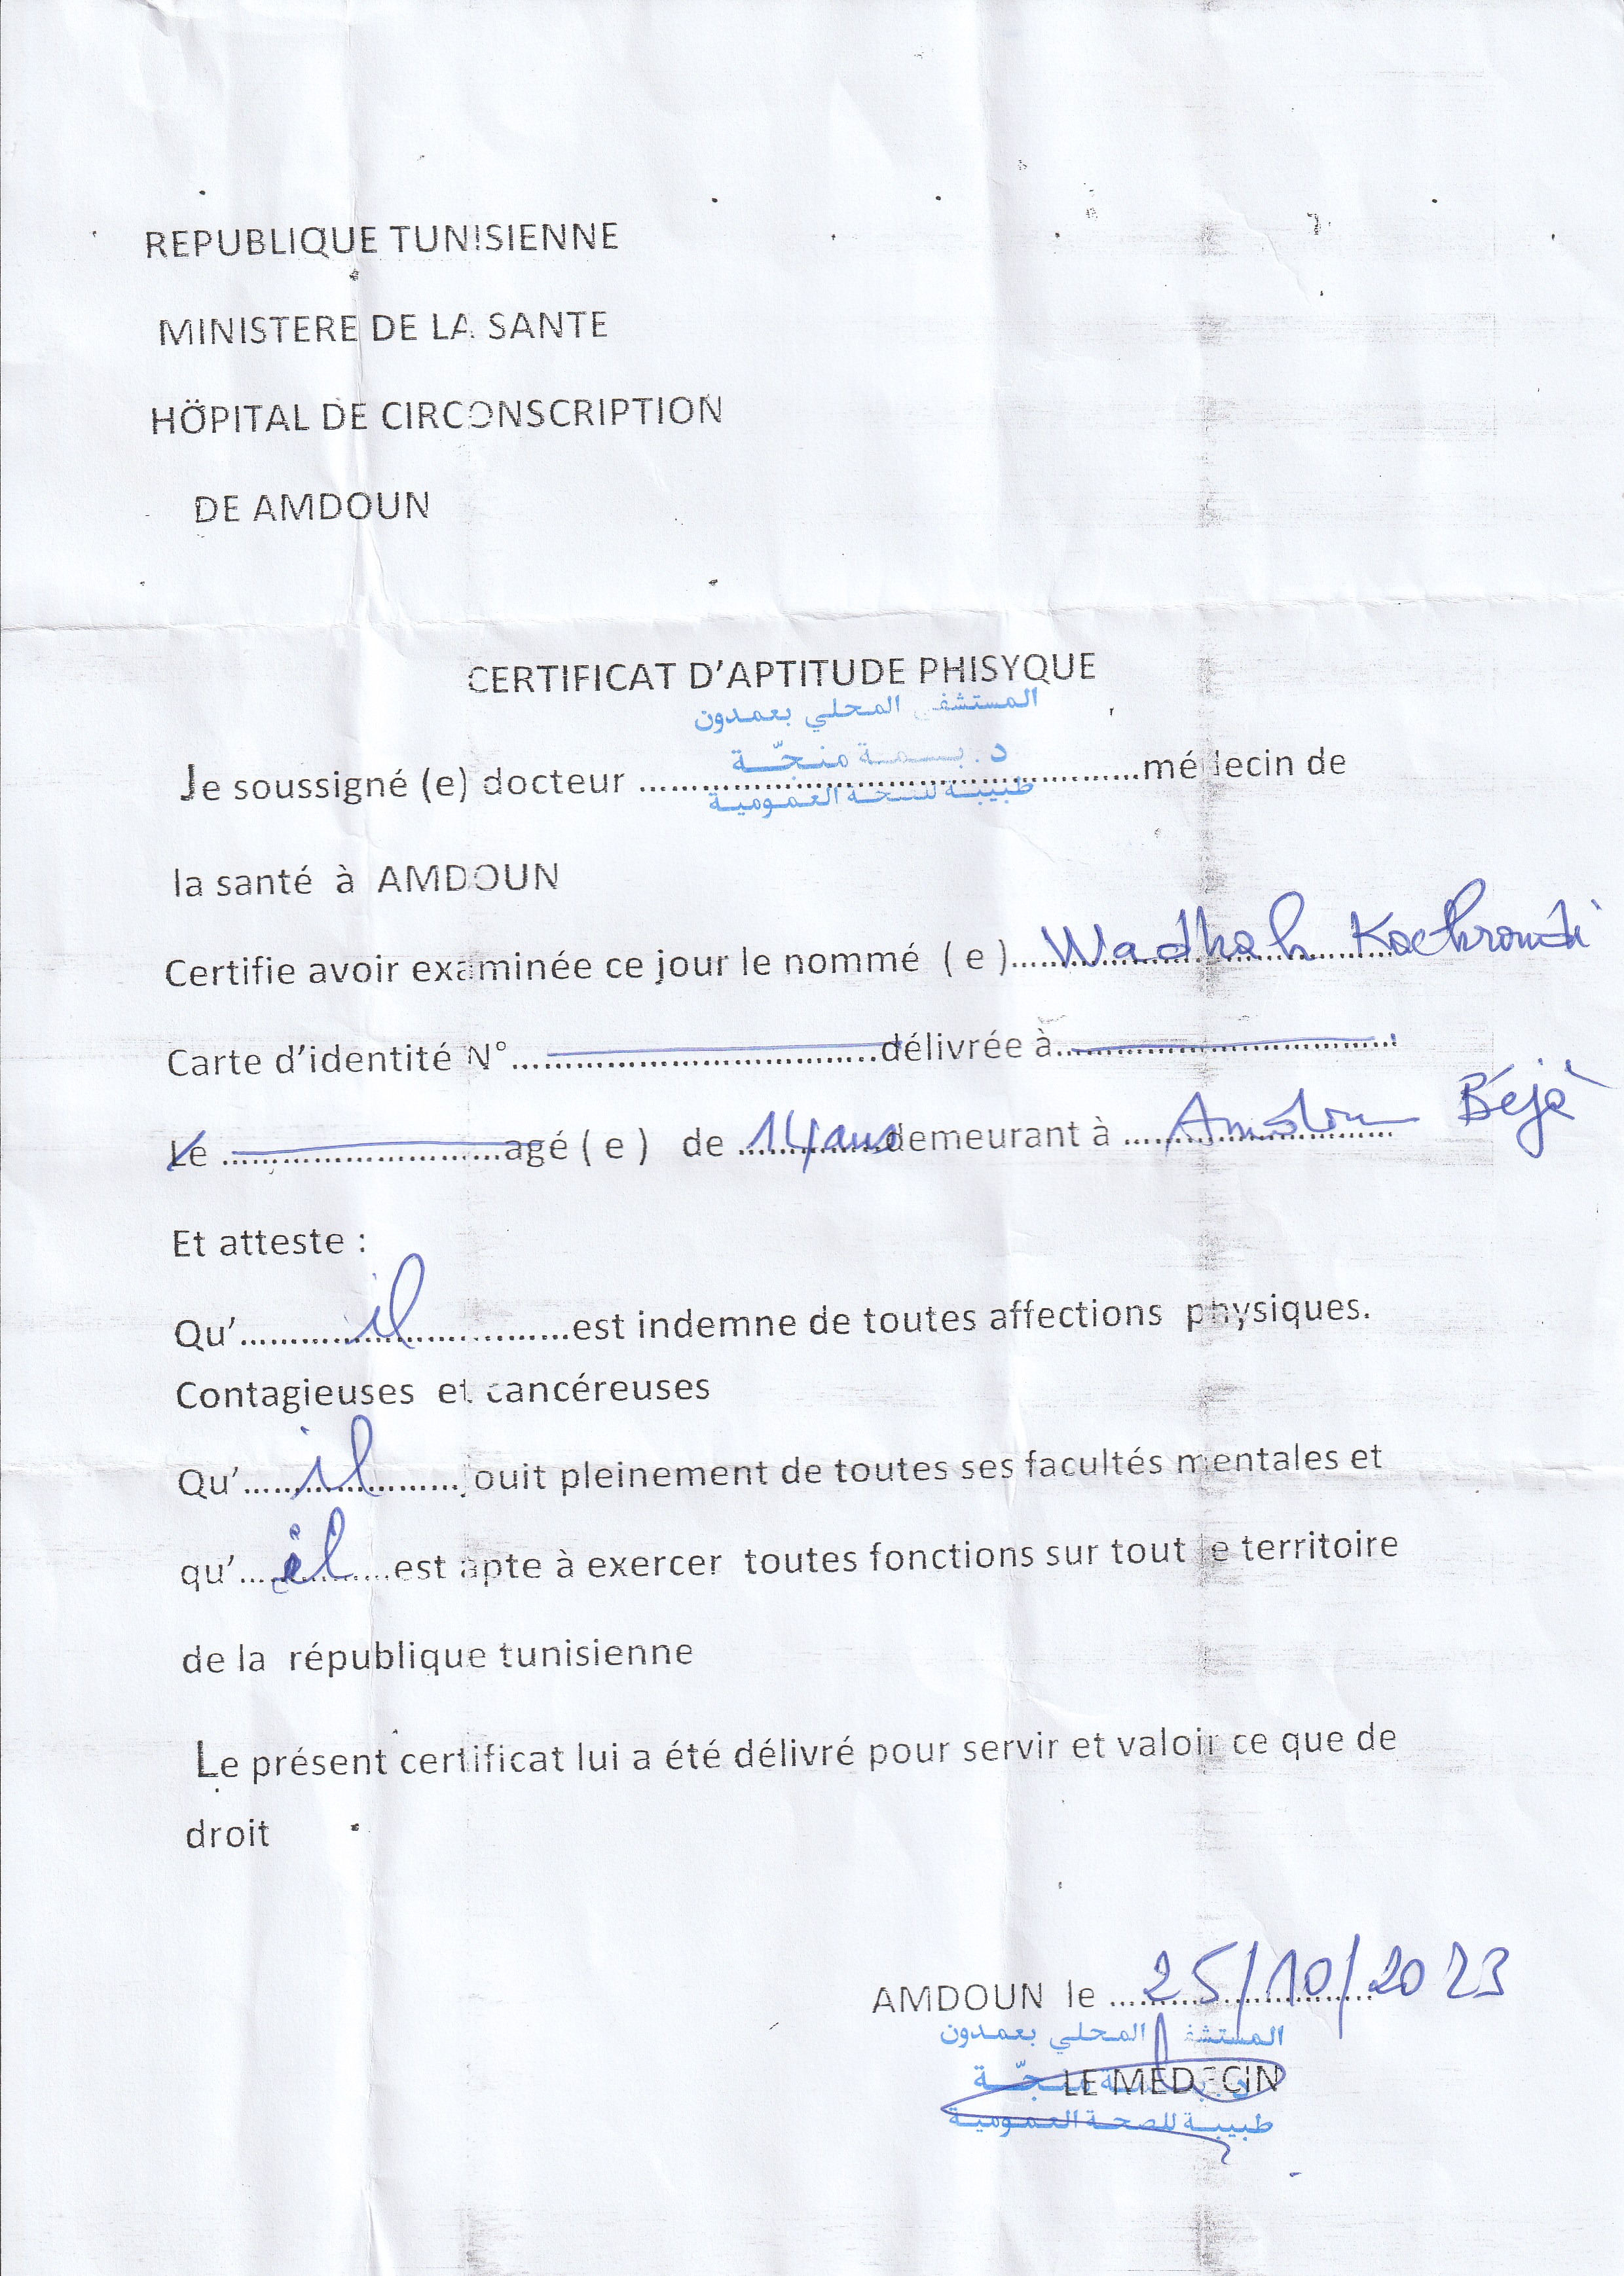 REPUBLIQUE TUNISIENNE
MINISTERE DE LA SANTE
HÖPITAL DE CIRCONSCRIPTION
DE AMDOUN
CERTIFICAT D'APTITUDE PHISYQUE
المستشفى المحلي بعمدون
د. بسمة منجّة
Je soussigné (e) docteur ........................................médecin de
طبيبة للصحة العمومية
la santé à AMDOUN
Certifie avoir examinée ce jour le nommé ( e )....Wadhah Kachroudi
Carte d'identité N° ....................................délivrée à..................................
Le ...........................agé ( e ) de 14 ans demeurant à ....Amdoun Béja
Et atteste :
Qu'............il................est indemne de toutes affections physiques.
Contagieuses et cancéreuses
Qu'......il...........jouit pleinement de toutes ses facultés mentales et
qu'....il......est apte à exercer toutes fonctions sur tout le territoire
de la république tunisienne
Le présent certificat lui a été délivré pour servir et valoir ce que de
droit
AMDOUN le ....25/10/2023
المستشفى المحلي بعمدون
د. بسمة منجّة
LE MEDECIN
طبيبة للصحة العمومية